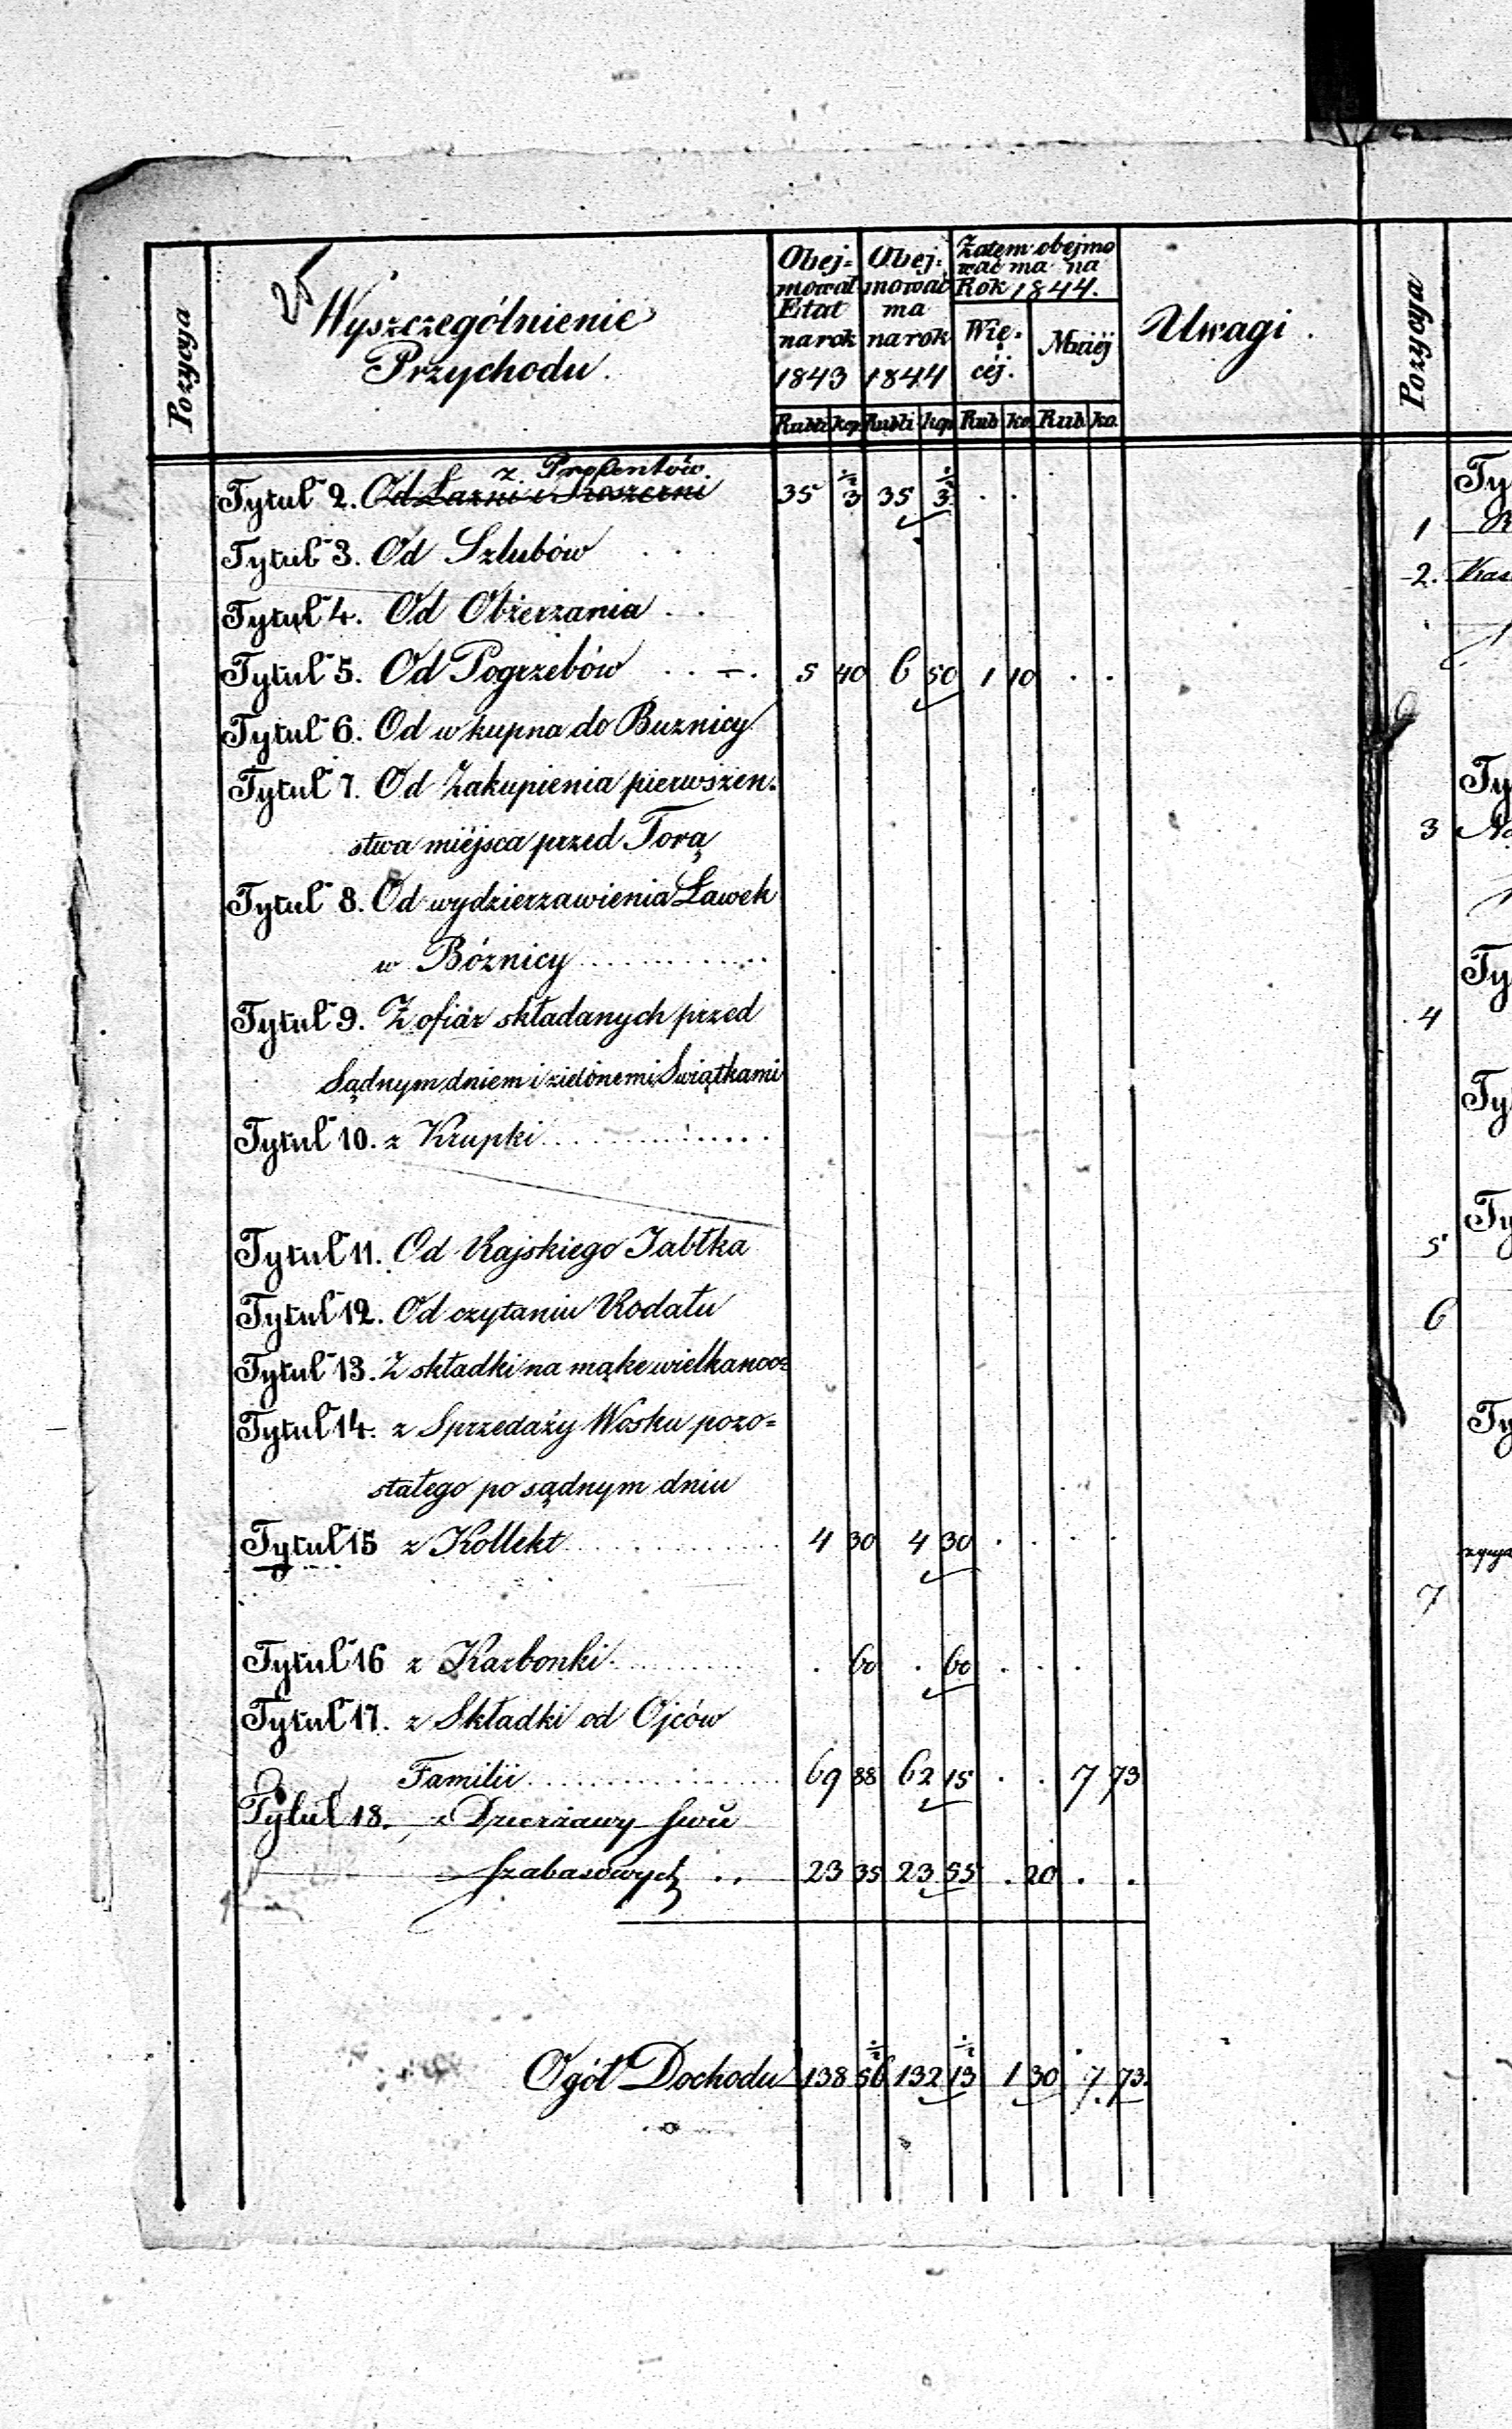 Pozycya
Wyszczególnienie
Przychodu.
Obej=
mował
Etat
na rok
1843
Obej=
mować
ma
na rok
1844
Zatem obejmo
wać ma na
Rok 1844.
Wię=
céj.
Mniéj
Uwagi
Rubli kop Rubli kop Rub ko Rub. ko.
z Procentów
Tytuł 2. Od Łaźni i 35 ½ 3 35 ½ 3 . .
Tytuł 3. Od Szlubów . . .
Tytuł 4. Od Obżerzania . .
Tytuł 5. Od Pogrzebów . . — . 5 40 6 50 1 10 . .
Tytuł 6. Od wkupna do Buznicy
Tytuł 7. Od Zakupienia pierwszen=
stwa miéjsca przed Torą
Tytuł 8. Od wydzierzawienia Ławek
w Bóznicy ............
Tytuł 9. Z ofiar składanych przed
Sądnym dniem i zielonemi Swiątkami
Tytuł 10. z Krupki ............
Tytuł 11. Od Rajskiego Jabłka
Tytuł 12. Od czytaniu Rodału
Tytuł 13. Z składki na mąke wielkanoc=
Tytuł 14. z Sprzedaży Wosku pozo=
stałego po sądnym dniu
Tytuł 15 z Kollekt ............ 4 30 4 30 . . . .
Tytuł 16 z Karbonki ............ . 60 . 60 . . .
Tytuł 17. z Składki od Ojców
Familii ............ 69 88 62 15 . . 7 73
Tytuł 18. z Dzierżawy
Szabasowych . . 23 35 23 55 . 20 . .
Ogół Dochodu 138 ½ 56 132 ½ 13 1 30 7 73.
Pozycya
Ty
1
2.
Ty
3
Ty
4
Ty
Ty
5
6
Ty
7